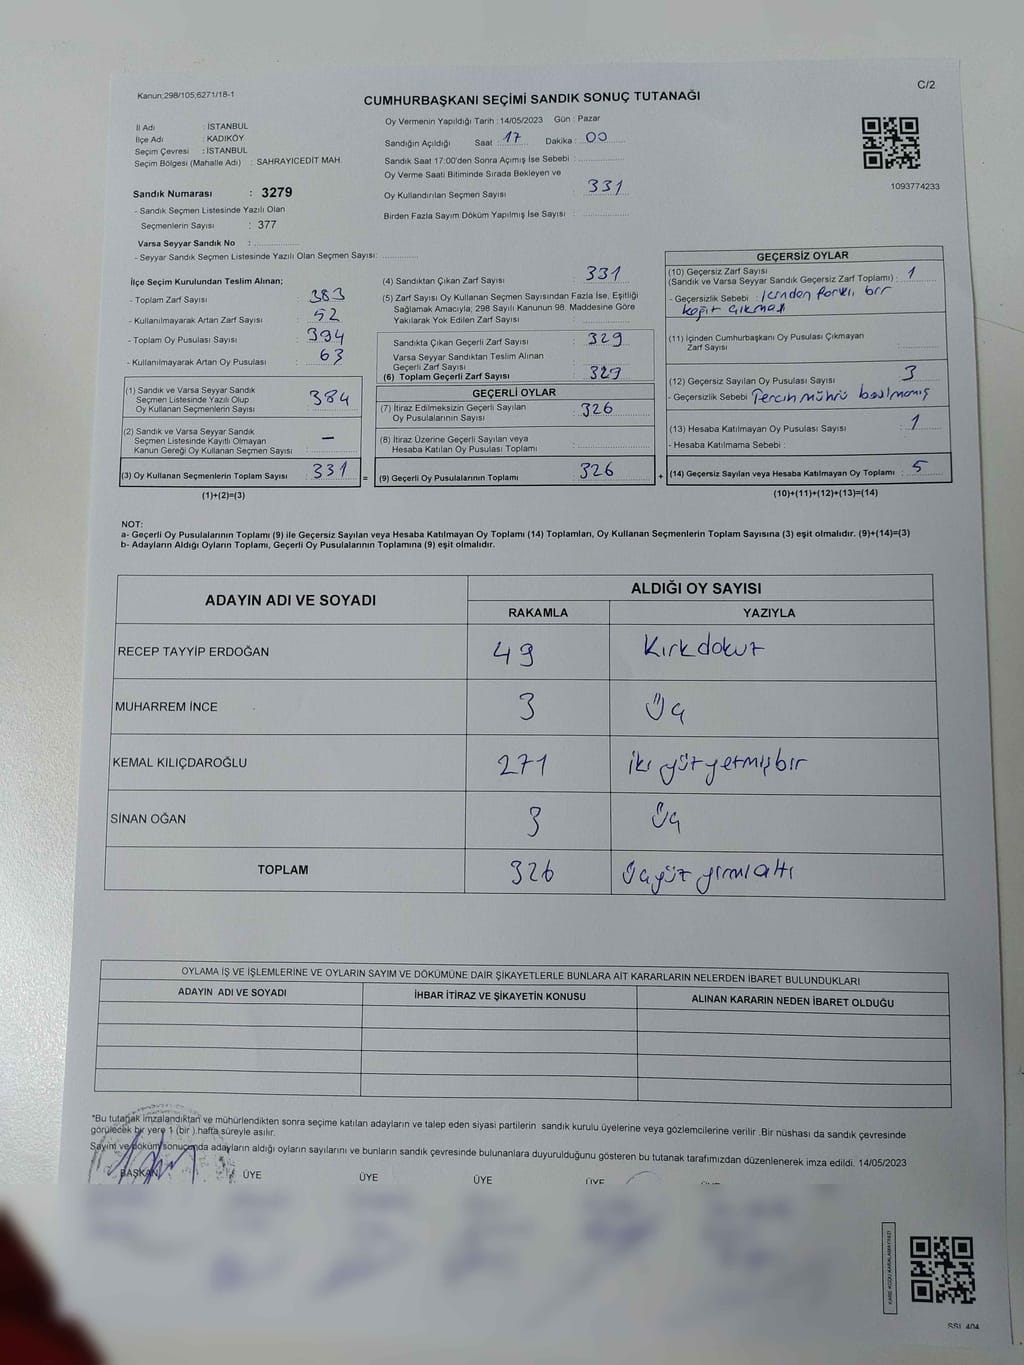 Kanun;298/105;6271/18-1
C/2
CUMHURBAŞKANI SEÇİMİ SANDIK SONUÇ TUTANAĞI
İl Adı : İSTANBUL
İlçe Adı : KADIKÖY
Seçim Çevresi : İSTANBUL
Seçim Bölgesi (Mahalle Adı) : SAHRAYICEDİT MAH.
Oy Vermenin Yapıldığı Tarih :14/05/2023 Gün : Pazar
Sandığın Açıldığı Saat : 17 Dakika : 00
Sandık Saat 17:00'den Sonra Açımış İse Sebebi :
Oy Verme Saati Bitiminde Sırada Bekleyen ve
Oy Kullandırılan Seçmen Sayısı : 331
Birden Fazla Sayım Döküm Yapılmış İse Sayısı :
1093774233
Sandık Numarası : 3279
- Sandık Seçmen Listesinde Yazılı Olan
Seçmenlerin Sayısı : 377
Varsa Seyyar Sandık No :
- Seyyar Sandık Seçmen Listesinde Yazılı Olan Seçmen Sayısı:
İlçe Seçim Kurulundan Teslim Alınan;
- Toplam Zarf Sayısı : 383
- Kullanılmayarak Artan Zarf Sayısı : 52
- Toplam Oy Pusulası Sayısı : 394
- Kullanılmayarak Artan Oy Pusulası : 63
(1) Sandık ve Varsa Seyyar Sandık
Seçmen Listesinde Yazılı Olup
Oy Kullanan Seçmenlerin Sayısı : 384
(2) Sandık ve Varsa Seyyar Sandık
Seçmen Listesinde Kayıtlı Olmayan
Kanun Gereği Oy Kullanan Seçmen Sayısı : –
(3) Oy Kullanan Seçmenlerin Toplam Sayısı : 331 =
(1)+(2)=(3)
(4) Sandıktan Çıkan Zarf Sayısı : 331
(5) Zarf Sayısı Oy Kullanan Seçmen Sayısından Fazla İse, Eşitliği
Sağlamak Amacıyla; 298 Sayılı Kanunun 98. Maddesine Göre
Yakılarak Yok Edilen Zarf Sayısı :
Sandıkta Çıkan Geçerli Zarf Sayısı : 329
Varsa Seyyar Sandıktan Teslim Alınan
Geçerli Zarf Sayısı :
(6) Toplam Geçerli Zarf Sayısı : 329
GEÇERLİ OYLAR
(7) İtiraz Edilmeksizin Geçerli Sayılan
Oy Pusulalarının Sayısı : 326
(8) İtiraz Üzerine Geçerli Sayılan veya
Hesaba Katılan Oy Pusulası Toplamı :
(9) Geçerli Oy Pusulalarının Toplamı : 326 +
GEÇERSİZ OYLAR
(10) Geçersiz Zarf Sayısı
(Sandık ve Varsa Seyyar Sandık Geçersiz Zarf Toplamı) : 1
- Geçersizlik Sebebi : İçinden farklı bir
kağıt çıkması
(11) İçinden Cumhurbaşkanı Oy Pusulası Çıkmayan
Zarf Sayısı :
(12) Geçersiz Sayılan Oy Pusulası Sayısı : 3
- Geçersizlik Sebebi : Tercih mührü basılmamış
(13) Hesaba Katılmayan Oy Pusulası Sayısı : 1
- Hesaba Katılmama Sebebi :
(14) Geçersiz Sayılan veya Hesaba Katılmayan Oy Toplamı : 5
(10)+(11)+(12)+(13)=(14)
NOT:
a- Geçerli Oy Pusulalarının Toplamı (9) ile Geçersiz Sayılan veya Hesaba Katılmayan Oy Toplamı (14) Toplamları, Oy Kullanan Seçmenlerin Toplam Sayısına (3) eşit olmalıdır. (9)+(14)=(3)
b- Adayların Aldığı Oyların Toplamı, Geçerli Oy Pusulalarının Toplamına (9) eşit olmalıdır.
ADAYIN ADI VE SOYADI
ALDIĞI OY SAYISI
RAKAMLA YAZIYLA
RECEP TAYYİP ERDOĞAN 49 Kırkdokuz
MUHARREM İNCE 3 Üç
KEMAL KILIÇDAROĞLU 271 iki yüz yetmiş bir
SİNAN OĞAN 3 Üç
TOPLAM 326 Üçyüz yirmi altı
OYLAMA İŞ VE İŞLEMLERİNE VE OYLARIN SAYIM VE DÖKÜMÜNE DAİR ŞİKAYETLERLE BUNLARA AİT KARARLARIN NELERDEN İBARET BULUNDUKLARI
ADAYIN ADI VE SOYADI İHBAR İTİRAZ VE ŞİKAYETİN KONUSU ALINAN KARARIN NEDEN İBARET OLDUĞU
*Bu tutanak imzalandıktan ve mühürlendikten sonra seçime katılan adayların ve talep eden siyasi partilerin sandık kurulu üyelerine veya gözlemcilerine verilir .Bir nüshası da sandık çevresinde
görülecek bir yere 1 (bir ) hafta süreyle asılır.
Sayım ve döküm sonucunda adayların aldığı oyların sayılarını ve bunların sandık çevresinde bulunanlara duyurulduğunu gösteren bu tutanak tarafımızdan düzenlenerek imza edildi. 14/05/2023
BAŞKAN ÜYE ÜYE ÜYE ÜYE
KARE KODU KARALAMAYINIZ!